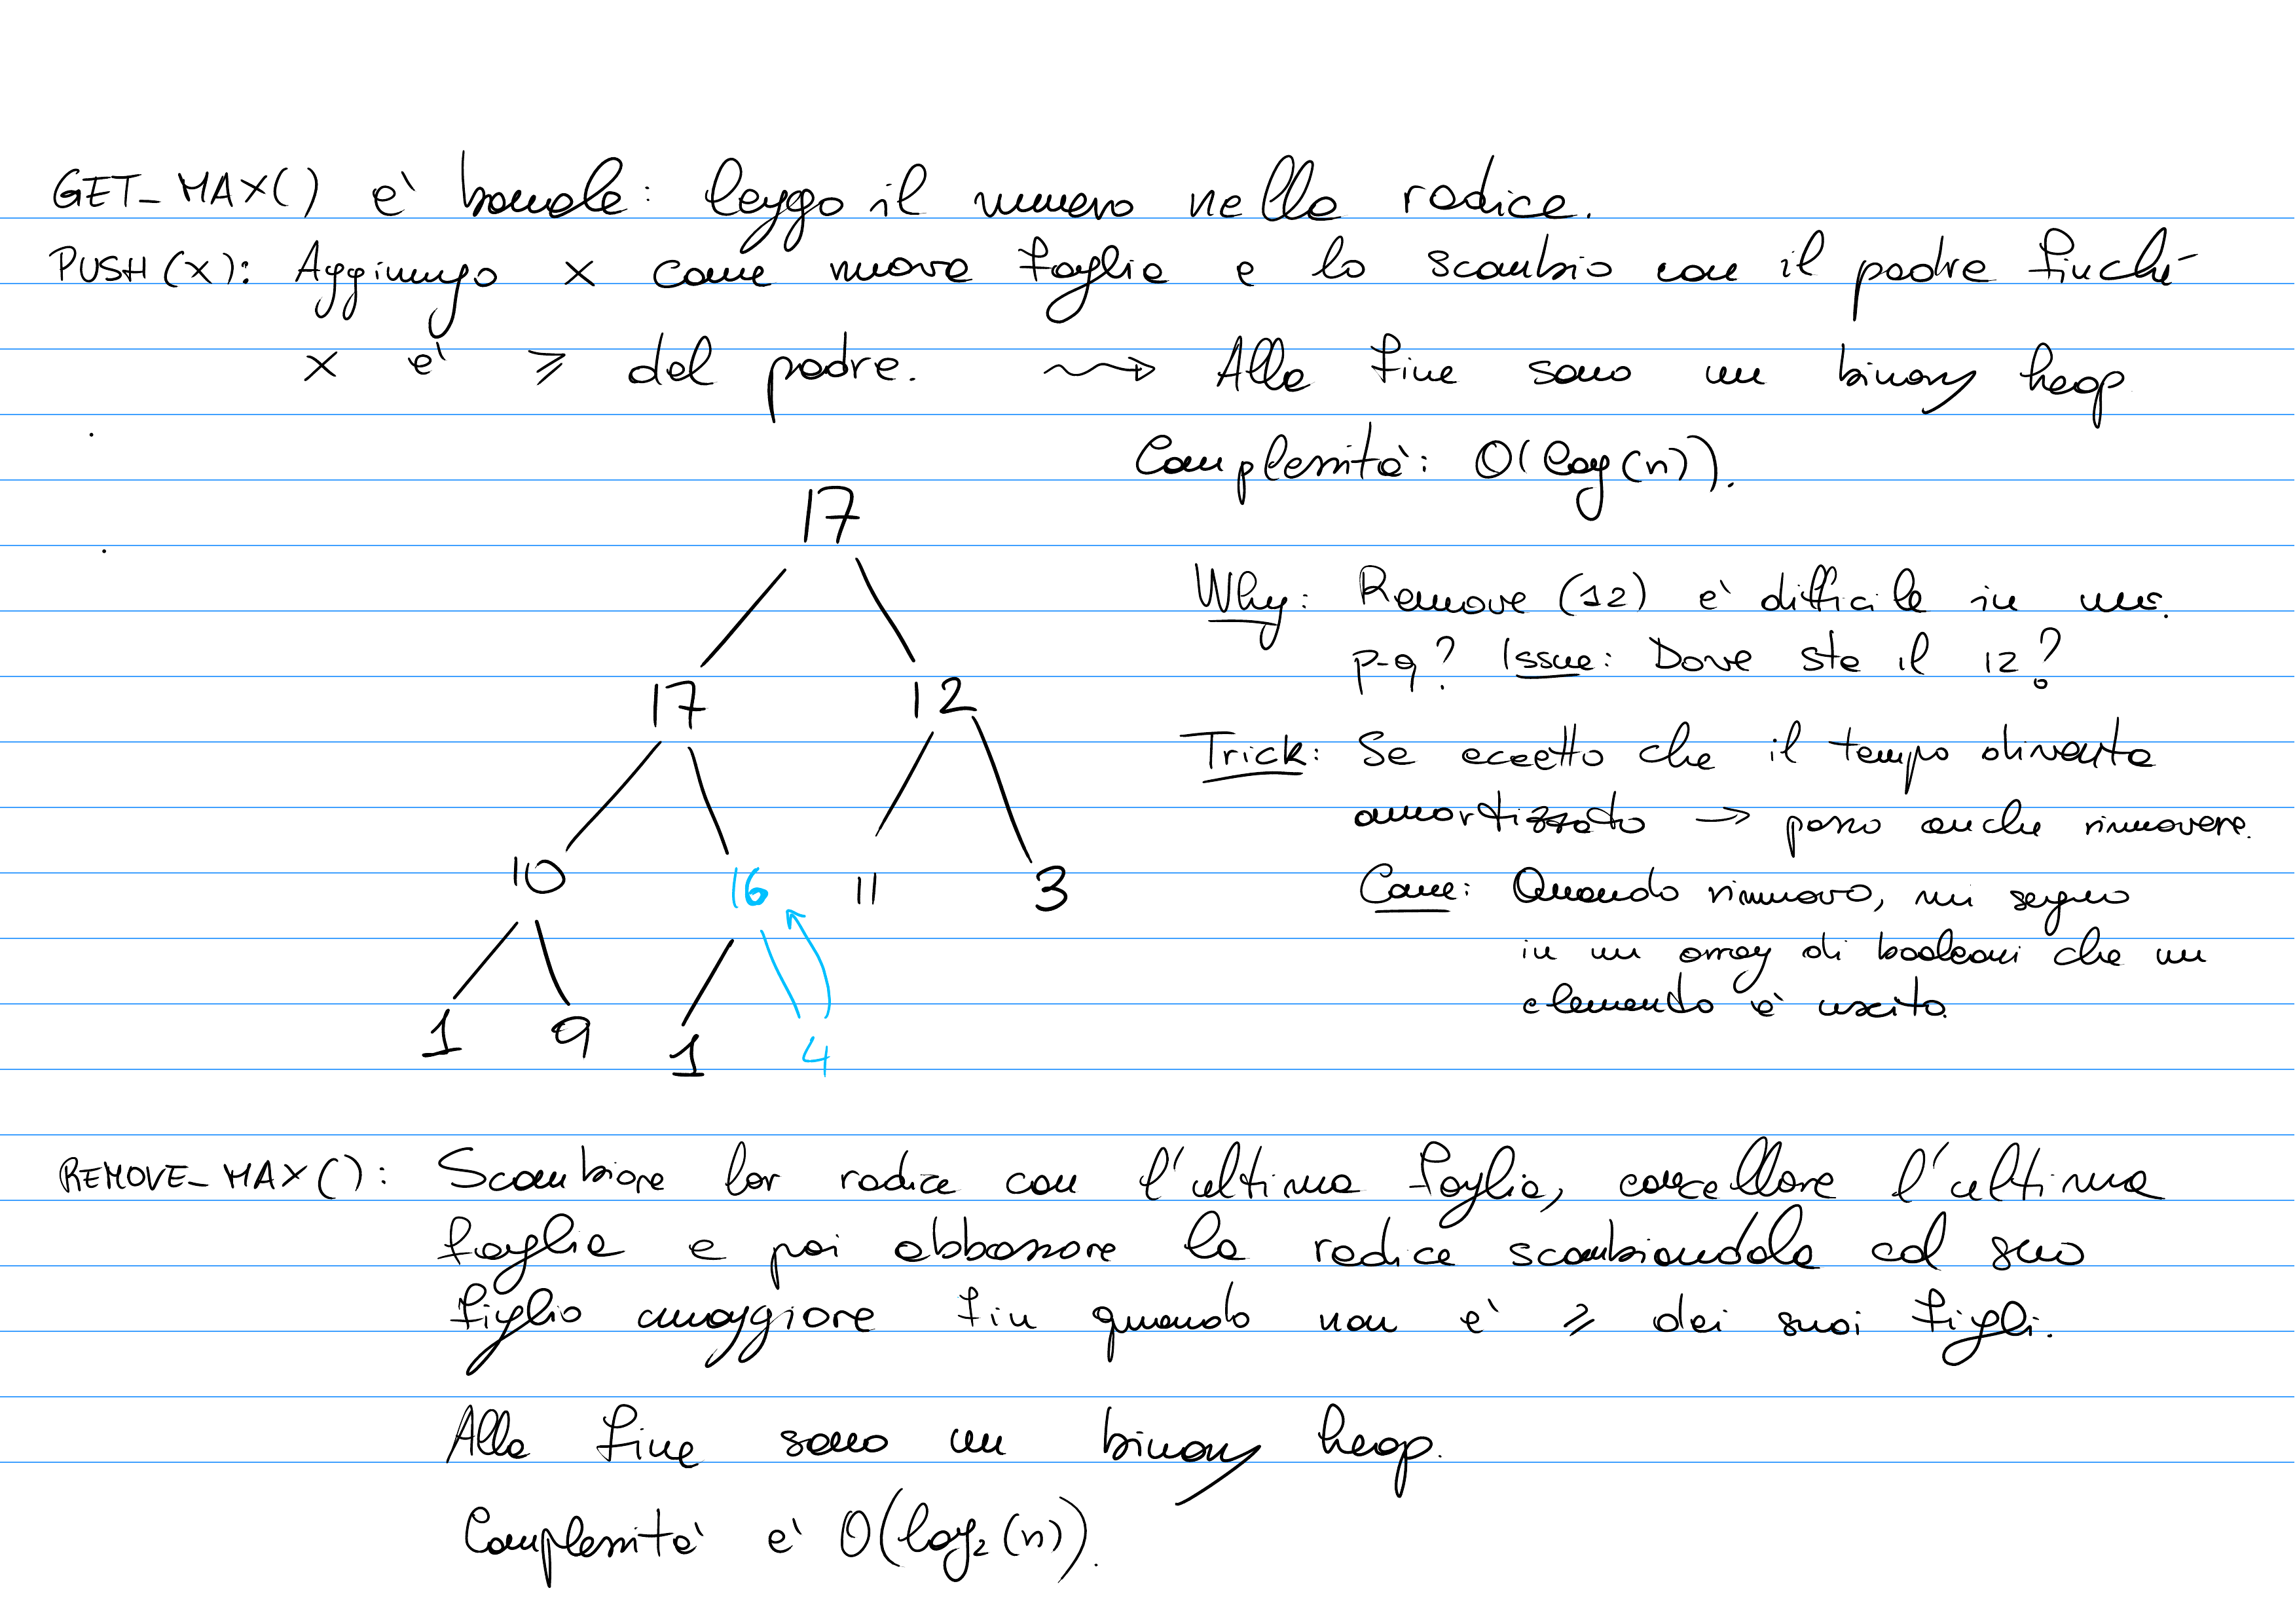 GET_MAX() e' banale: leggo il numero nella radice.
PUSH(x): Aggiungo x come nuova foglia e lo scambio con il padre finché
x e' ≥ del padre. ⇝ Alla fine sono un binary heap
Complessità: O(log(n)).
17
17 12
10 16 11 3
1 9 1 4
Why: Remove (12) e' difficile in una
p-q? Issue: Dove sta il 12?
Trick: Se accetto che il tempo diventa
amortizzato → posso anche rimuovere.
Come: Quando rimuovo, mi segno
in un array di booleani che un
elemento è uscito.
REMOVE_MAX(): Scambiare la radice con l'ultima foglia, cancellare l'ultima
foglia e poi abbassare la radice scambiandola col suo
figlio maggiore fin quando non e' ≥ dei suoi figli.
Alla fine sono un binary heap.
Complessità e' O(log₂(n)).